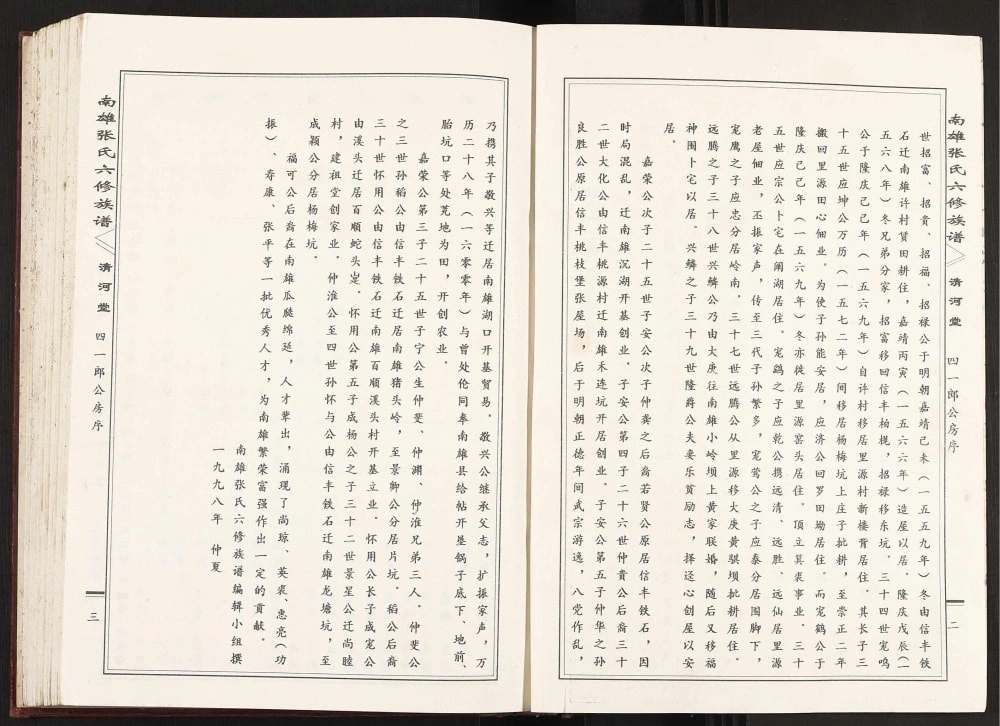 南雄张氏六修族谱
清河堂
四一郎公房序
二
世招富、招贵、招福、招禄公于明朝嘉靖己未（一五五九年）冬由信丰铁
石迁南雄许村赁田耕住，嘉靖丙寅（一五六六年）造屋以居。隆庆戊辰（一
五六八年）冬兄弟分家，招富移回信丰柏枧，招禄移东坑。三十四世宽鸣
公于隆庆己己年（一五六九年）自许村移居里源村新楼背居住。其长子三
十五世应坤公万历（一五七二年）间移居杨梅坑上庄子批耕，至崇正二年
搬回里源田心佃业。为使子孙能安居，应济公回罗田塅居住。而宽鹤公于
隆庆己己年（一五六九年）冬亦徙居里源窑头居住。顶立箕裘事业。三十
五世应宗公卜宅在阐湖居住。宽鹞之子应乾公携远清、远胜、远仙居里源
老屋佃业，丕振家声，传至三代子孙繁多，宽莺公之子应泰分居围脚下，
宽鹰之子应忠分居岭南。三十七世远腾公从里源移大庾黄骐坝批耕居住。
远腾之子三十八世兴鳞公乃由大庾往南雄小岭坝上黄家联婚，随后又移福
神围卜宅以居。兴鳞之子三十九世隆爵公夫妻乐贫励志，择迳心创屋以安
居。
嘉荣公次子二十五世子安公次子仲龚之后裔若贤公原居信丰铁石，因
时局混乱，迁南雄沉湖开基创业。子安公第四子二十六世仲贵公后裔三十
二世大化公由信丰桃源村迁南雄禾连坑开居创业。子安公第五子仲华之孙
良胜公原居信丰桃枝堡张屋场，后于明朝正德年间武宗游逸，八党作乱，
乃携其子敬兴等迁居南雄湖口开基贸易。敬兴公继承父志，扩振家声，万
历二十八年（一六零零年）与曾处伦同奉南雄县给帖开垦锅子底下、地前、
胎坑口等处荒地为田，开创农业。
嘉荣公第三子二十五世子宁公生仲斐、仲渊、仲淮兄弟三人。仲斐公
之三世孙稻公由信丰铁石迁居南雄猪头岭，至景卿公分居片坑。稻公后裔
三十世怀用公由信丰铁石迁南雄百顺溪头村开基立业。怀用公长子成宽公
由溪头迁居百顺蛇头岽。怀用公第五子成杨公之子三十二世景星公迁尚睦
村，建祖堂创家业。仲淮公至四世孙怀与公由信丰铁石迁南雄龙塘坑，至
成颖公分居杨梅坑。
福可公后裔在南雄瓜瓞绵延，人才辈出，涌现了尚琼、英裘、惠亮（功
振）、寿康、张平等一批优秀人才，为南雄繁荣富强作出一定的贡献。
南雄张氏六修族谱编辑小组撰
一九九八年　仲夏
南雄张氏六修族谱
清河堂
四一郎公房序
三